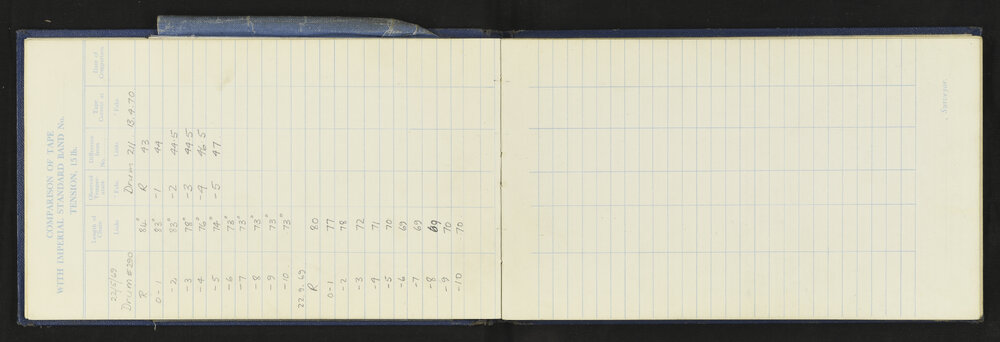 COMPARISON OF TAPE
WITH IMPERIAL STANDARD BAND No.
TENSION, 15 lb.
Length of Chain Links. Observed Temperature °Fahr. Difference from No. Links. Tape Correct at °Fahr. Date of Comparison
22/5/69
Drum #290 Drum 211 13.4.70
R 84" R 43
0-1 83" -1 44
-2 83" -2 44.5
-3 78" -3 44.5
-4 76" -4 46.5
-5 74" -5 47
-6 73"
-7 73"
-8 73"
-9 73"
-10 73"
22.9.69
R 80
0-1 77
-2 78
-3 72
-4 71
-5 70
-6 69
-7 69
-8 69
-9 70
-10 70
Surveyor.